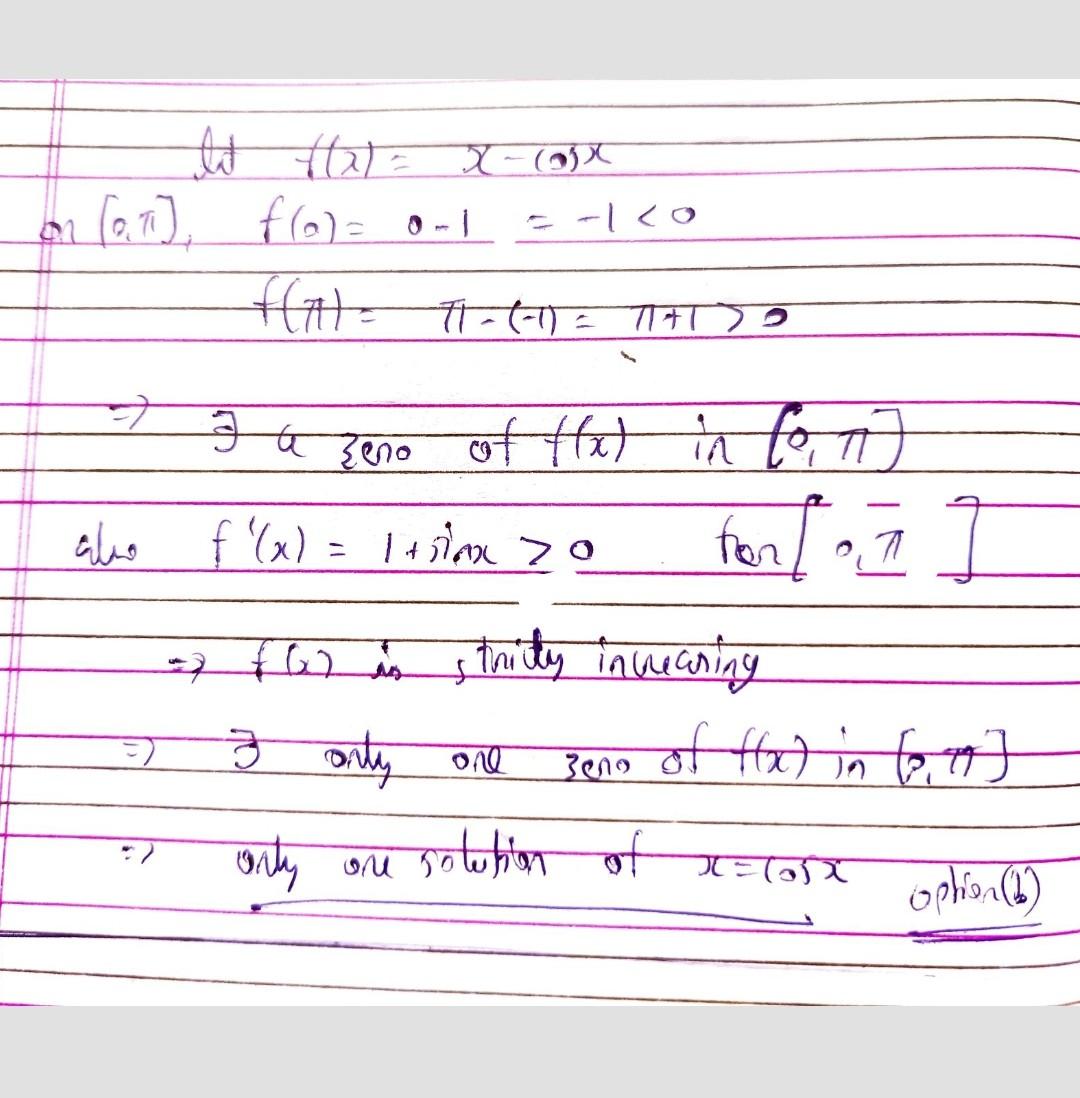 let f(x) = x - cosx
on [0,π], f(0) = 0-1 = -1 < 0
f(π) = π - (-1) = π+1 > 0
=> ∃ a zero of f(x) in [0, π]
also f'(x) = 1 + sinx > 0 for [0, π]
=> f(x) is strictly increasing
=> ∃ only one zero of f(x) in [0, π]
=> only one solution of x = cosx option(b)